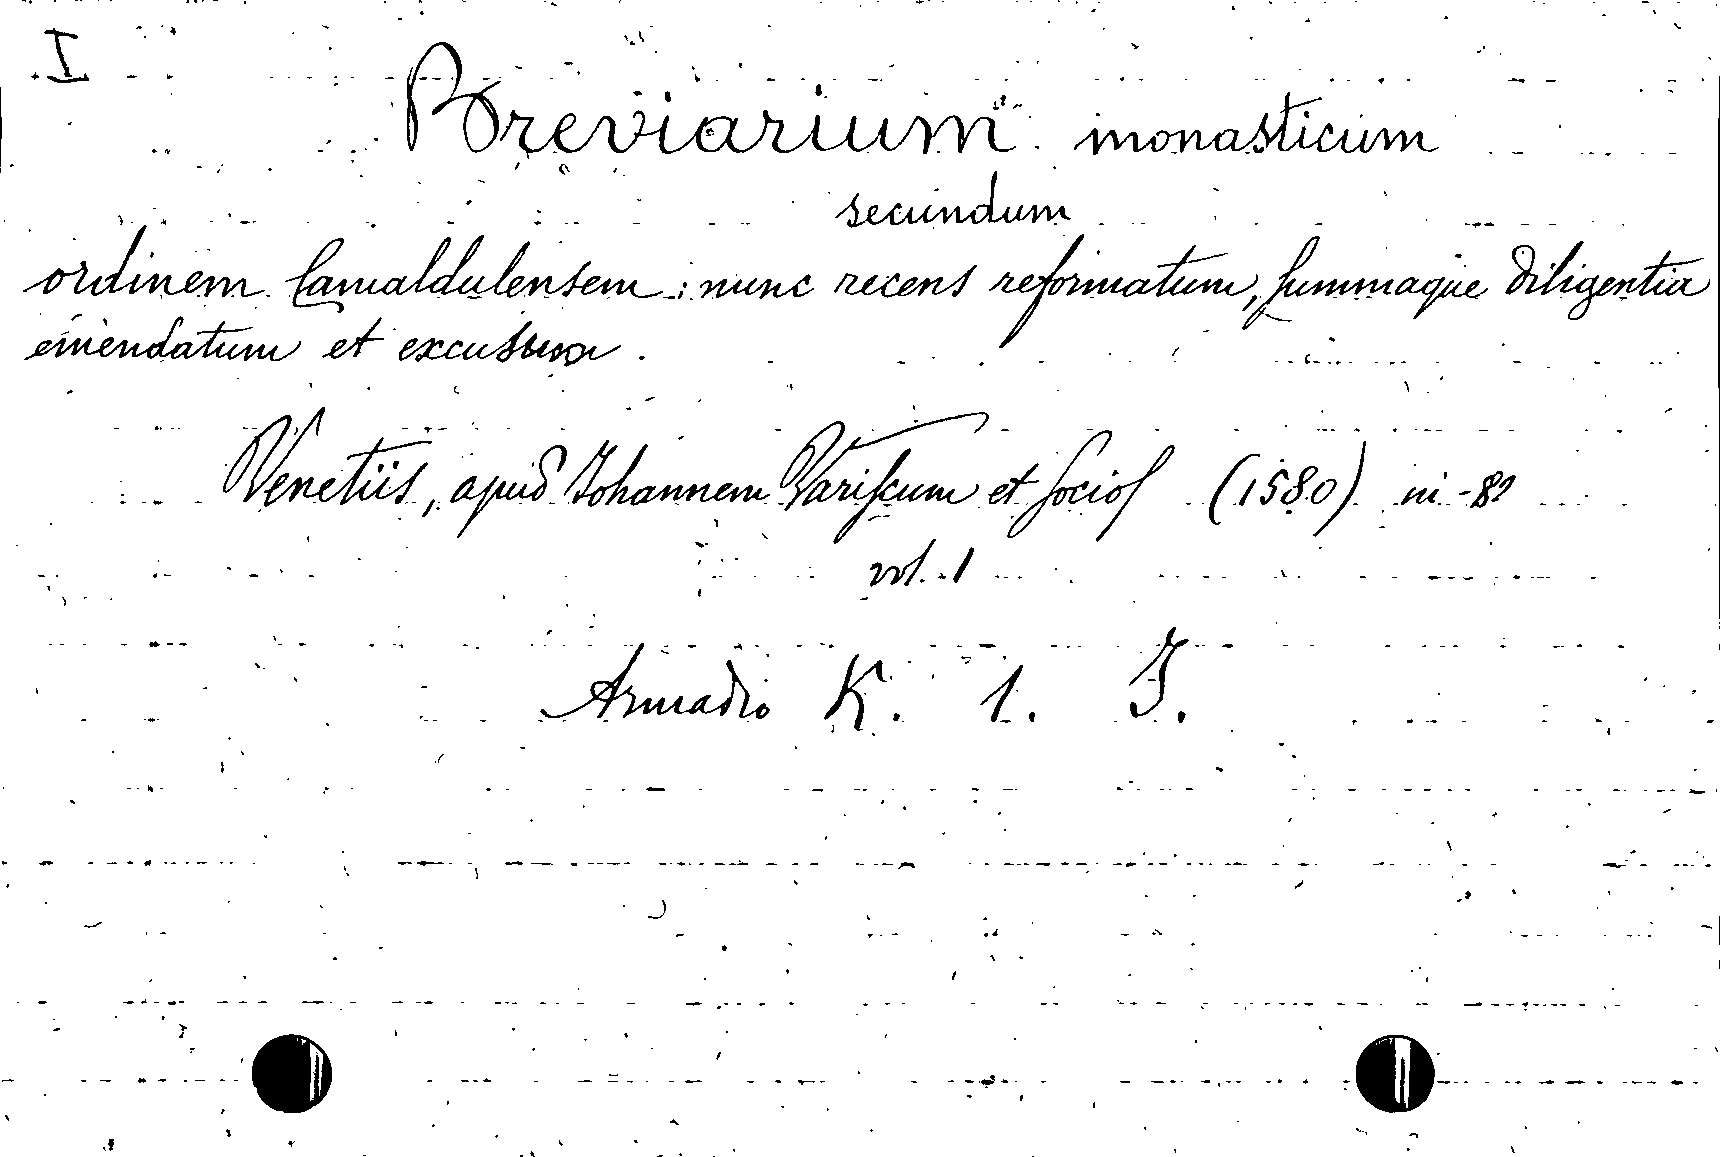 I
Breviarium monasticum
secundum
ordinem Camaldulensem: nunc recens reformatum, summaque diligentia
emendatum et excussum.
Venetiis, apud Johannem Variscum et socios (1580) in-8º
vol. 1
Armadio K. 1. I.